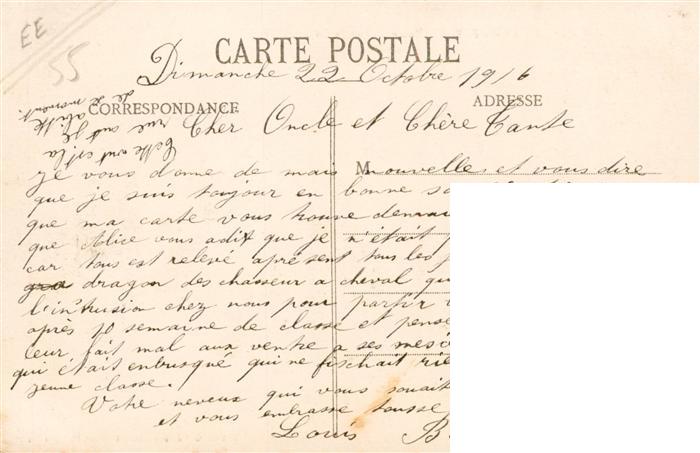 EE
55
CARTE POSTALE
Dimanche 22 Octobre 1916
CORRESPONDANCE
ADRESSE
Cette ant est la
rue ant je
abite
de ce moment.
Cher Oncle et Chère Tante
Je vous donne de mais Mnouvelles et vous dire
que je suis toujour en bonne
que ma carte vous trouve de
que Alice vous a dit que je n'était
car tous est relevé aprésent tous les
dragon des chasseur a cheval qu
l'intrusion chez nous pour partir
après 10 semaine de classe et pense
leur fait mal aux ventre a ses
qui était enbusqué qui ne fischait rie
jeune classe.
Votre neveux qui vous souait
et vous embrasse tousse
Louis B